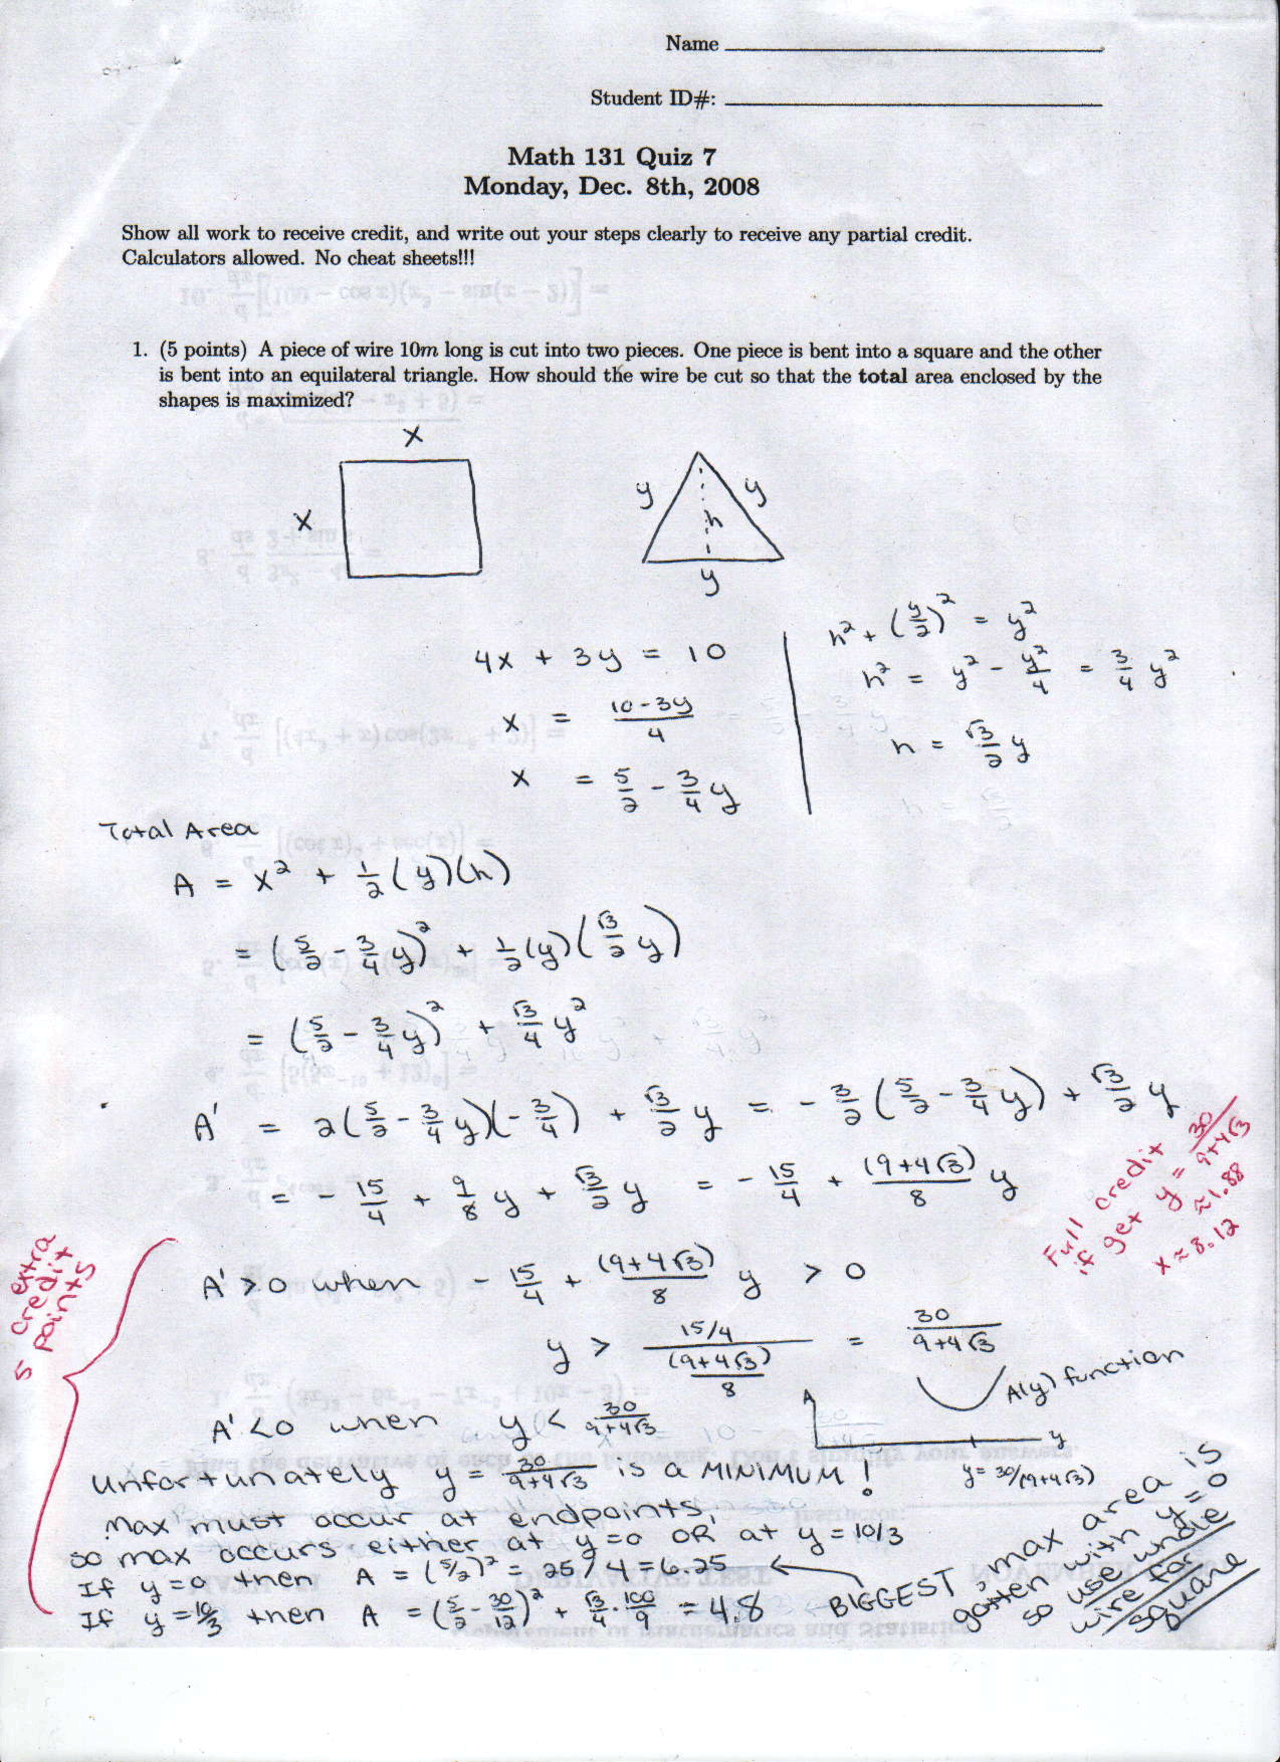 Name
Student ID#:
Math 131 Quiz 7
Monday, Dec. 8th, 2008
Show all work to receive credit, and write out your steps clearly to receive any partial credit.
Calculators allowed. No cheat sheets!!!
1. (5 points) A piece of wire 10m long is cut into two pieces. One piece is bent into a square and the other
is bent into an equilateral triangle. How should the wire be cut so that the total area enclosed by the
shapes is maximized?
x
x
y y
h
y
4x + 3y = 10
x = (10-3y)/4
x = 5/2 - 3/4 y
h² + (y/2)² = y²
h² = y² - y²/4 = 3/4 y²
h = √3/2 y
Total Area
A = x² + 1/2 (y)(h)
= (5/2 - 3/4 y)² + 1/2 (y)(√3/2 y)
= (5/2 - 3/4 y)² + √3/4 y²
A' = 2(5/2 - 3/4 y)(-3/4) + √3/2 y = -3/2 (5/2 - 3/4 y) + √3/2 y
= -15/4 + 9/8 y + √3/2 y = -15/4 + (9+4√3)/8 y
Full credit
if get y = 30/(9+4√3)
≈1.88
x ≈ 8.12
extra
credit
5 points
A' > 0 when -15/4 + (9+4√3)/8 y > 0
y > (15/4)/((9+4√3)/8) = 30/(9+4√3)
A' < 0 when y < 30/(9+4√3)
A
A(y) function
y
y = 30/(9+4√3)
Unfortunately y = 30/(9+4√3) is a MINIMUM!
Max must occur at endpoints,
so max occurs either at y=0 OR at y = 10/3
If y=0 then A = (5/2)² = 25/4 = 6.25
If y=10/3 then A = (5/2 - 30/12)² + √3/4 · 100/9 = 4.8
BIGGEST, max area is
gotten with y=0
so use whole
wire for
square